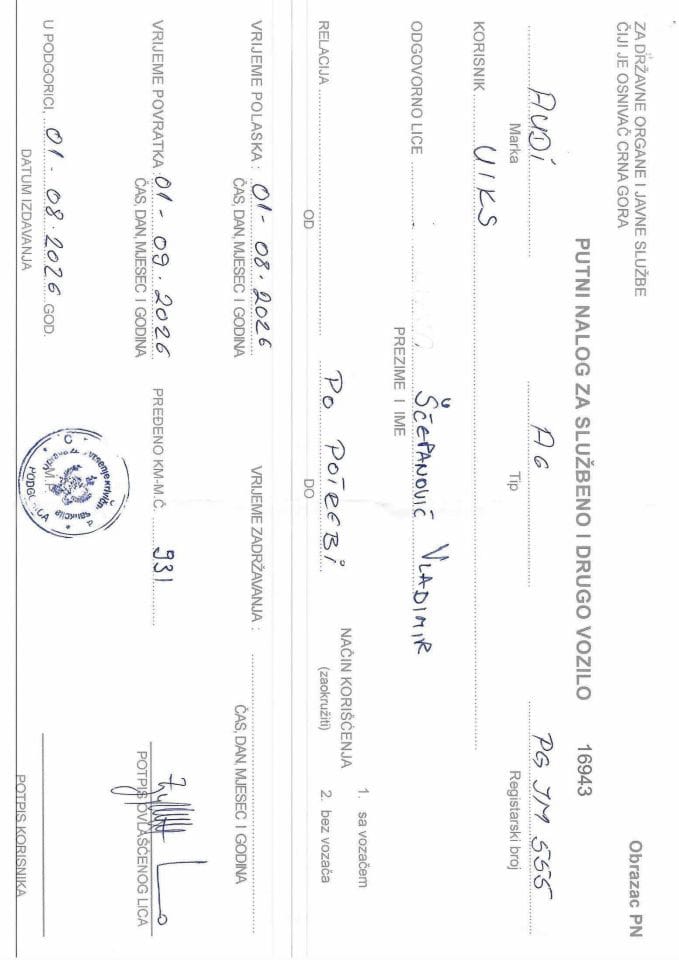 ZA DRŽAVNE ORGANE I JAVNE SLUŽBE
ČIJI JE OSNIVAČ CRNA GORA
Obrazac PN
PUTNI NALOG ZA SLUŽBENO I DRUGO VOZILO 16943
AUDI A6 PG JM 555
Marka Tip Registarski broj
KORISNIK UIKS
ODGOVORNO LICE ŠĆEPANOVIĆ VLADIMIR
PREZIME I IME
NAČIN KORIŠĆENJA
(zaokružiti)
1. sa vozačem
2. bez vozača
RELACIJA PO POTREBI
OD DO
VRIJEME POLASKA : 01-08.2026 VRIJEME ZADRŽAVANJA :
ČAS, DAN, MJESEC I GODINA ČAS, DAN, MJESEC I GODINA
VRIJEME POVRATKA : 01-09.2026 PREĐENO KM-M.Č. 931
ČAS, DAN, MJESEC I GODINA POTPIS OVLAŠĆENOG LICA
U PODGORICI, 01-08.2026 GOD.
DATUM IZDAVANJA
M.P.
PODGORICA
POTPIS KORISNIKA